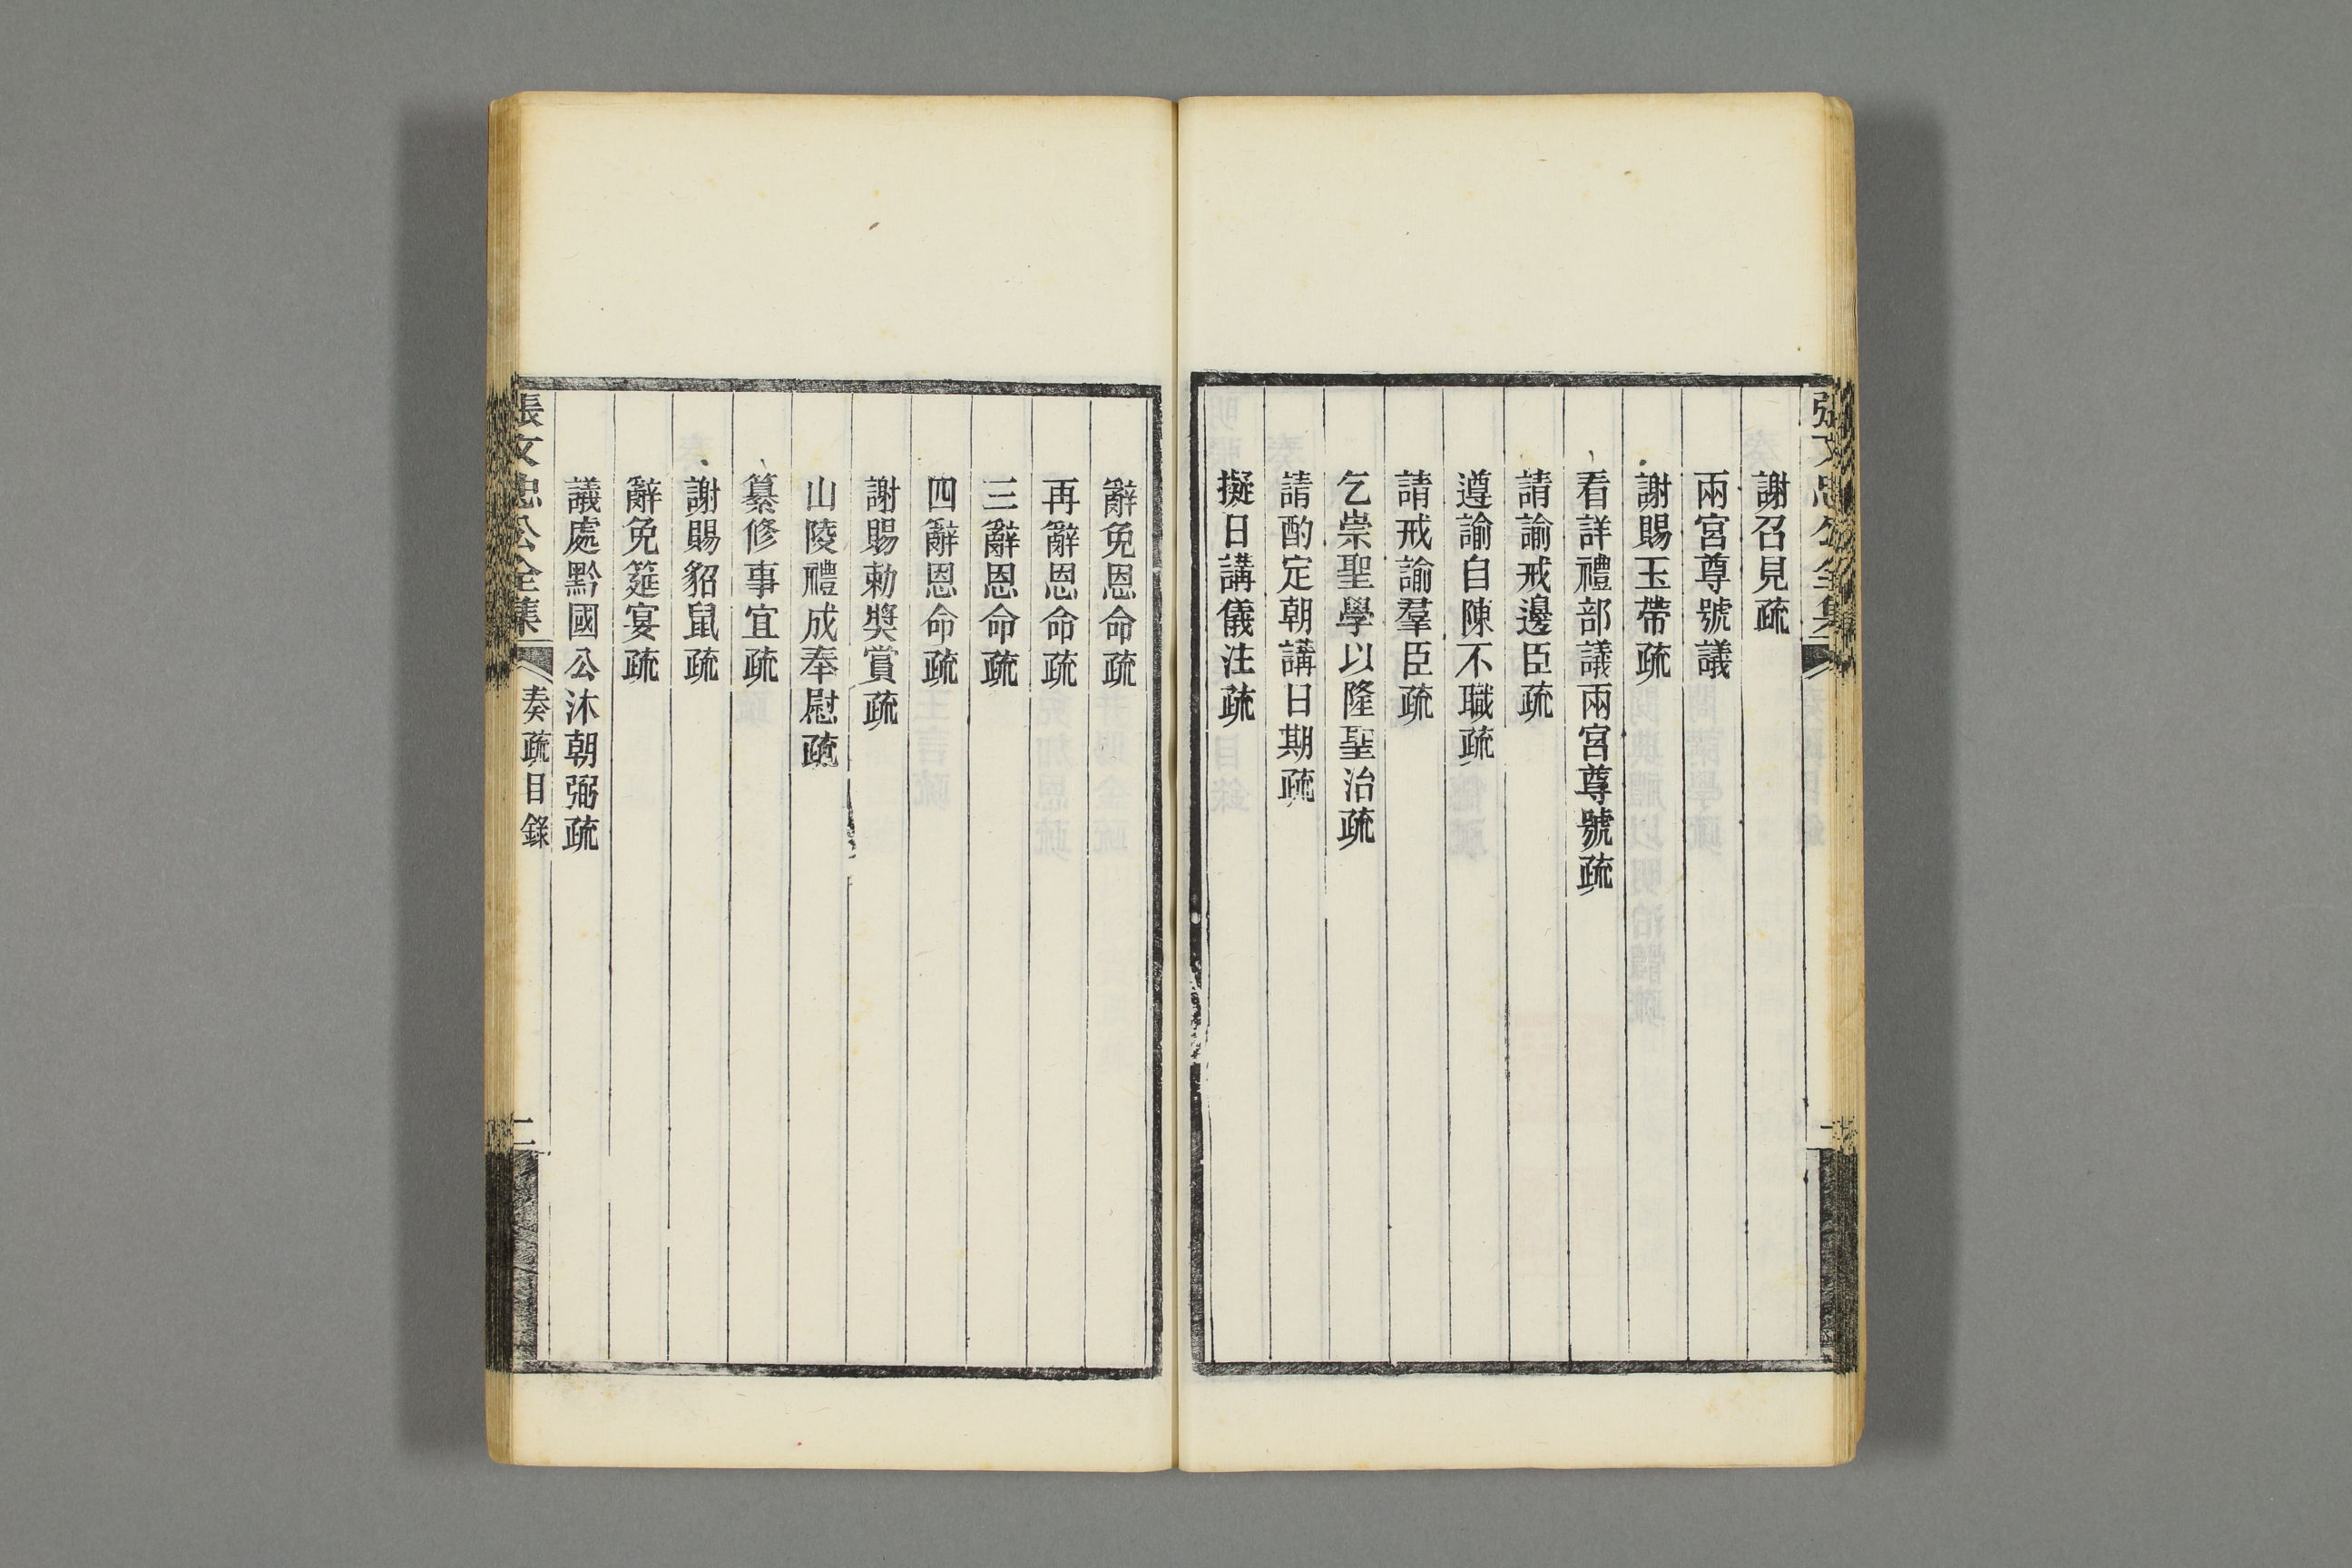 張文忠公全集
謝召見疏
兩宮尊號議
謝賜玉帶疏
看詳禮部議兩宮尊號疏
請諭戒邊臣疏
遵諭自陳不職疏
請戒諭羣臣疏
乞崇聖學以隆聖治疏
請酌定朝講日期疏
擬日講儀注疏
辭免恩命疏
再辭恩命疏
三辭恩命疏
四辭恩命疏
謝賜勅獎賞疏
山陵禮成奉慰疏
纂修事宜疏
謝賜貂鼠疏
辭免筵宴疏
議處黔國公沐朝弼疏
張文忠公全集 奏疏目錄 二